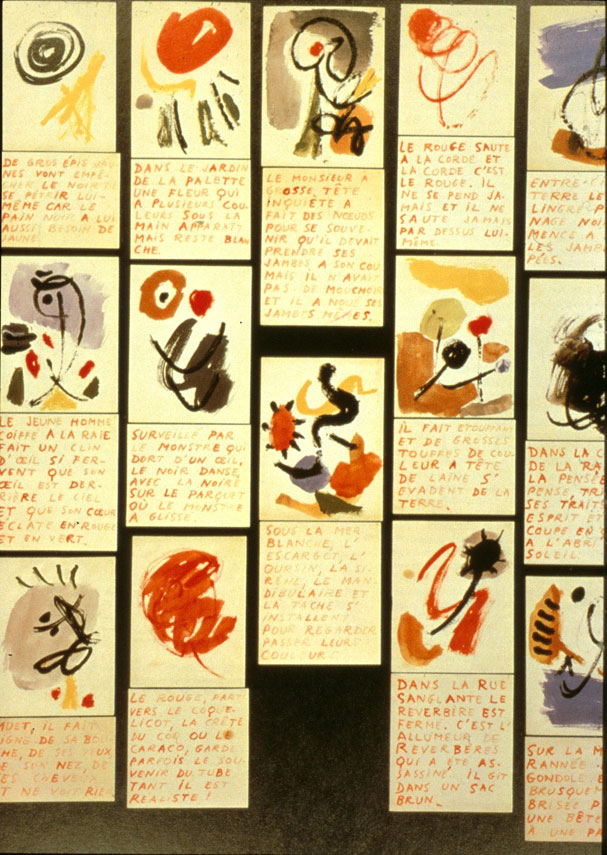 DE GROS ÉPIS JAU-
NES VONT EMPÊ-
CHER LE NOIR DE
SE PÉTRIR LUI-
MÊME CAR LE
PAIN NOIR A LUI
AUSSI BESOIN DE
JAUNE.
DANS LE JARDIN
DE LA PALETTE
UNE FLEUR QUI
A PLUSIEURS COU-
LEURS SOUS LA
MAIN APPARAÎT
MAIS RESTE BLAN
CHE.
LE MONSIEUR A
GROSSE TÊTE
INQUIÈTE A
FAIT DES NŒUDS
POUR SE SOUVE-
NIR QU'IL DEVAIT
PRENDRE SES
JAMBES A SON COU
MAIS IL N'AVAIT
PAS DE MOUCHOIR
ET IL A NOUÉ SES
JAMBES MÊMES.
LE ROUGE SAUTE
A LA CORDE ET
LA CORDE C'EST
LE ROUGE. IL
NE SE PEND JA-
MAIS ET IL NE
SAUTE JAMAIS
PAR DESSUS LUI-
MÊME.
ENTRE-
TERRE LE
LINGRE
UAGE NOI
MENCE A
LES JAMB
PÉES.
LE JEUNE HOMME
COIFFÉ A LA RAIE
FAIT UN CLIN
D'ŒIL SI FER-
VENT QUE SON
ŒIL EST DER-
RIÈRE LE CIEL
ET QUE SON CŒUR
ÉCLATE EN ROUGE
ET EN VERT.
SURVEILLÉ PAR
LE MONSTRE QUI
DORT D'UN ŒIL,
LE NOIR DANSE
AVEC LA NOIRE
SUR LE PARQUET
OÙ LE MONSTRE
A GLISSÉ.
SOUS LA MER
BLANCHE, L'
ESCARGOT, L'
OURSIN, LA SI-
RÈNE, LE MAN
DIBULAIRE ET
LA TACHE S'
INSTALLENT
POUR REGARDER
PASSER LEURS
COULEURS
IL FAIT ÉTOUFFANT
ET DE GROSSES
TOUFFES DE COU-
LEUR A TÊTE
DE LAINE S'
ÉVADENT DE LA
TERRE.
DANS LA C
DE LA RA
LA PENSÉE
PENSE, TR
SES TRAITS
ESPRIT ET
COUPE EN
A L'ABRI
SOLEIL.
MUET, IL FAIT
IGNE DE SA BOU
HE, DE SES YEUX
E SON NEZ, DE
ES CHEVEUX
T NE VOIT RIEN
LE ROUGE, FARD
VERS LE COQUE-
LICOT, LA CRÊTE
DU COQ OU LE
CARACO, GARDE
PARFOIS LE SOU-
VENIR DU TUBE
TANT IL EST
RÉALISTE !
DANS LA RUE
SANGLANTE LE
RÉVERBÈRE EST
FERMÉ. C'EST L'
ALLUMEUR DE
RÉVERBÈRES
QUI A ÉTÉ AS-
SASSINÉ, IL GIT
DANS UN SAC
BRUN.
SUR LA M
RANNÉE
GONDOLE E
BRUSQUEM
BRISÉE P
UNE BÊTE
A UNE PA